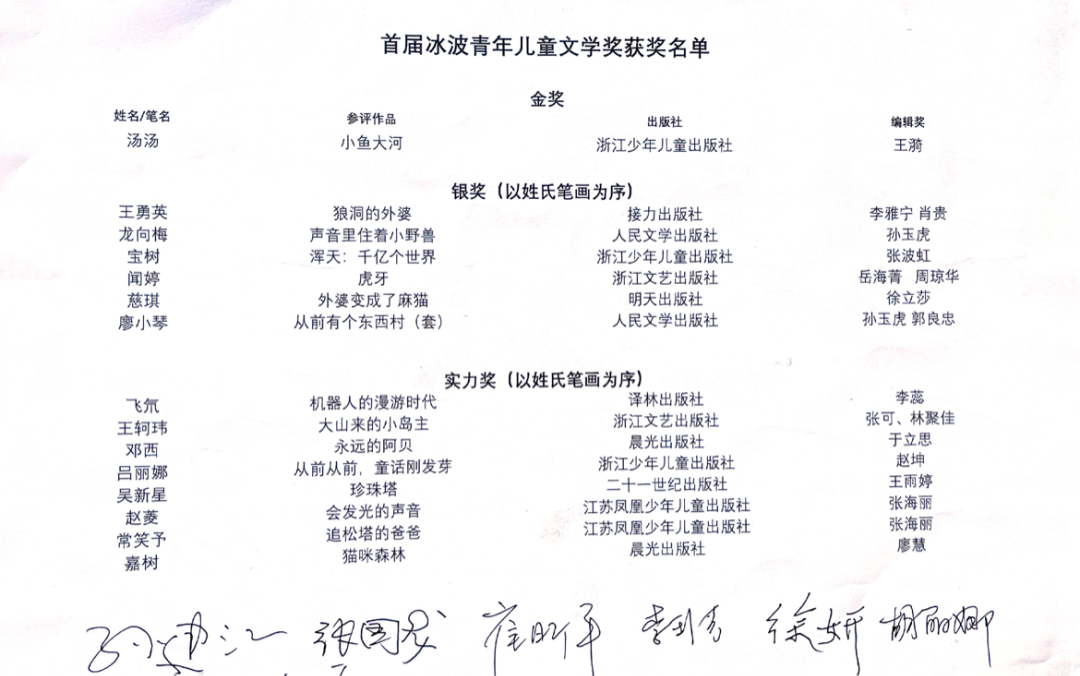 首届冰波青年儿童文学奖获奖名单
金奖
姓名/笔名 参评作品 出版社 编辑奖
汤汤 小鱼大河 浙江少年儿童出版社 王漪
银奖（以姓氏笔画为序）
王勇英 狼洞的外婆 接力出版社 李雅宁 肖贵
龙向梅 声音里住着小野兽 人民文学出版社 孙玉虎
宝树 浑天：千亿个世界 浙江少年儿童出版社 张波虹
闻婷 虎牙 浙江文艺出版社 岳海菁 周琼华
慈琪 外婆变成了麻猫 明天出版社 徐立莎
廖小琴 从前有个东西村（套） 人民文学出版社 孙玉虎 郭良忠
实力奖（以姓氏笔画为序）
飞氘 机器人的漫游时代 译林出版社 李蕊
王轲玮 大山来的小岛主 浙江文艺出版社 张可、林聚佳
邓西 永远的阿贝 晨光出版社 于立思
吕丽娜 从前从前，童话刚发芽 浙江少年儿童出版社 赵坤
吴新星 珍珠塔 二十一世纪出版社 王雨婷
赵菱 会发光的声音 江苏凤凰少年儿童出版社 张海丽
常笑予 追松塔的爸爸 江苏凤凰少年儿童出版社 张海丽
嘉树 猫咪森林 晨光出版社 廖慧
孙建江 张国龙 崔昕平 李利芳 徐妍 胡丽娜